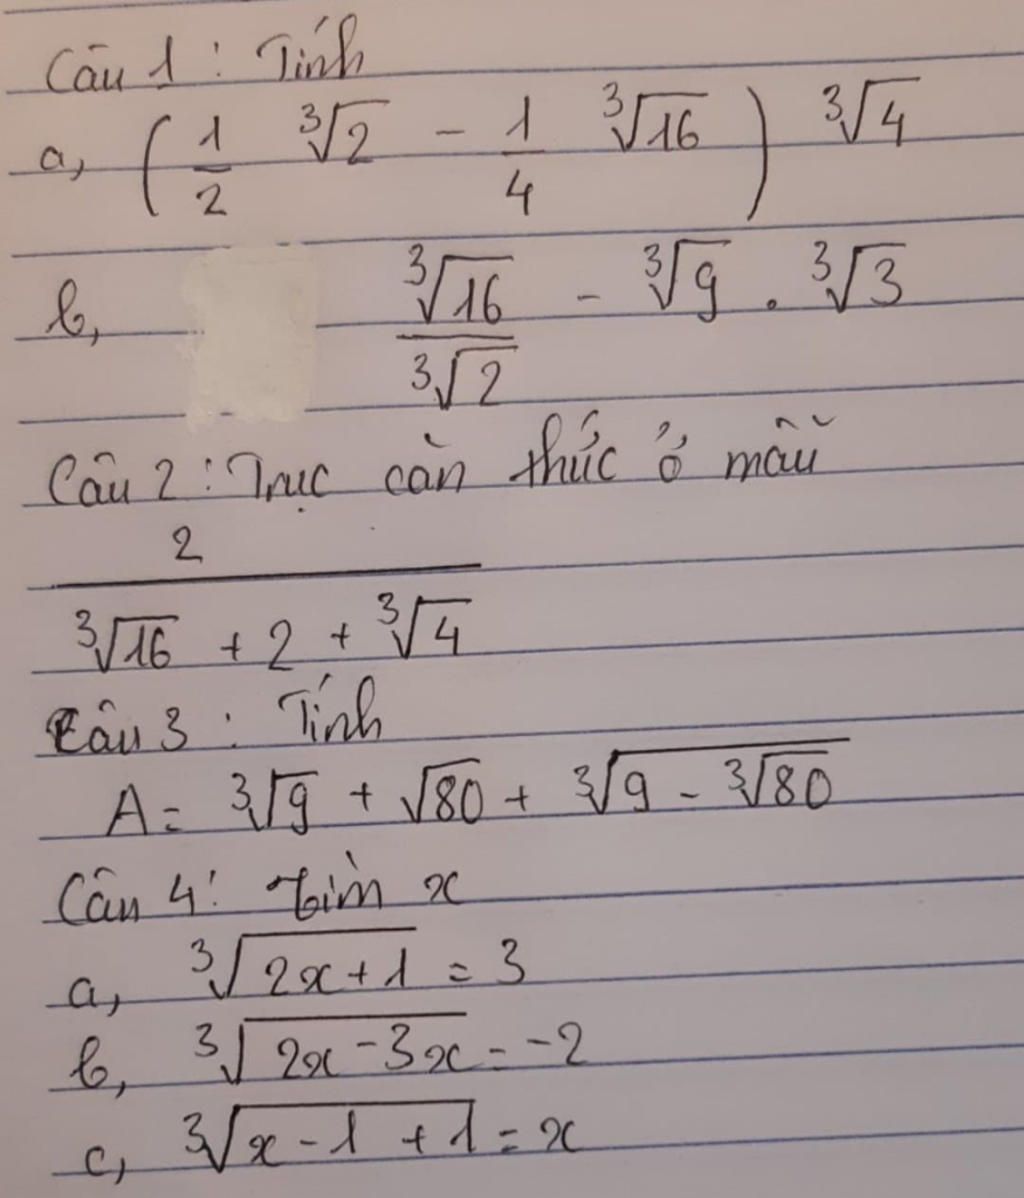 Câu 1 : Tính
a, ( 1/2 ∛2 - 1/4 ∛16 ) ∛4
b, ∛16/∛2 - ∛9 . ∛3
Câu 2 : Trục căn thức ở mẫu
2/(∛16 + 2 + ∛4)
Câu 3 : Tính
A = ∛9 + √80 + ∛(9 - ∛80)
Câu 4 : tìm x
a, ∛(2x+1) = 3
b, ∛(2x-3x) = -2
c, ∛(x-1+1) = x